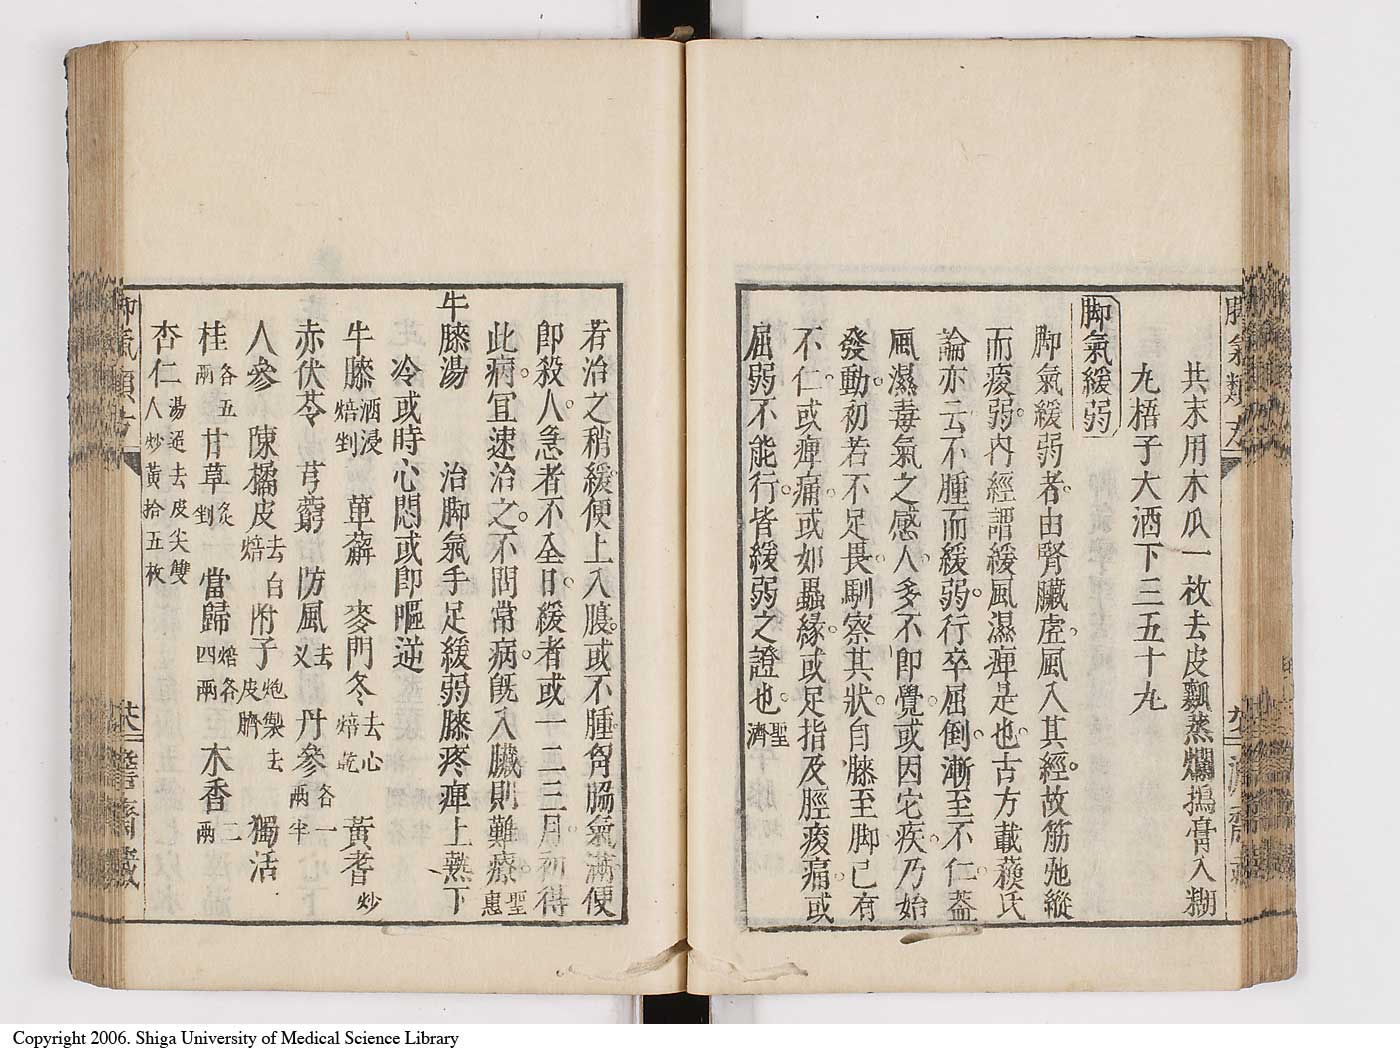 共末用木瓜一枚去皮瓤蒸爛搗膏入糊
丸梧子大酒下三五十丸
脚氣緩弱
脚氣緩弱者由腎臟虛風入其經故筋弛縱
而痠弱內經謂緩風濕痺是也古方載蘇氏
論亦云不腫而緩弱行卒屈倒漸至不仁蓋
風濕毒氣之感人多不即覺或因它疾乃始
發動初若不足畏馴察其狀自膝至脚已有
不仁或痺痛或如蟲緣或足指及脛痠痛或
屈弱不能行皆緩弱之證也聖濟
若治之稍緩便上入腹或不腫胷脇氣滿便
即殺人急者不全日緩者或一二三月初得
此病宜速治之不問常病旣入臟則難療聖惠
牛膝湯 治脚氣手足緩弱膝疼痺上熱下
冷或時心悶或即嘔逆
牛膝酒浸焙剉 萆薢 麥門冬去心焙乾 黃耆炒
赤伏苓 芎藭 防風去义 丹參各一兩半
人參 陳橘皮去白焙 附子炮製去皮臍 獨活
桂各五兩 甘草炙剉 當歸焙各四兩 木香二兩
杏仁湯退去皮尖雙人炒黃拾五枚
脚氣類方
Copyright 2006. Shiga University of Medical Science Library